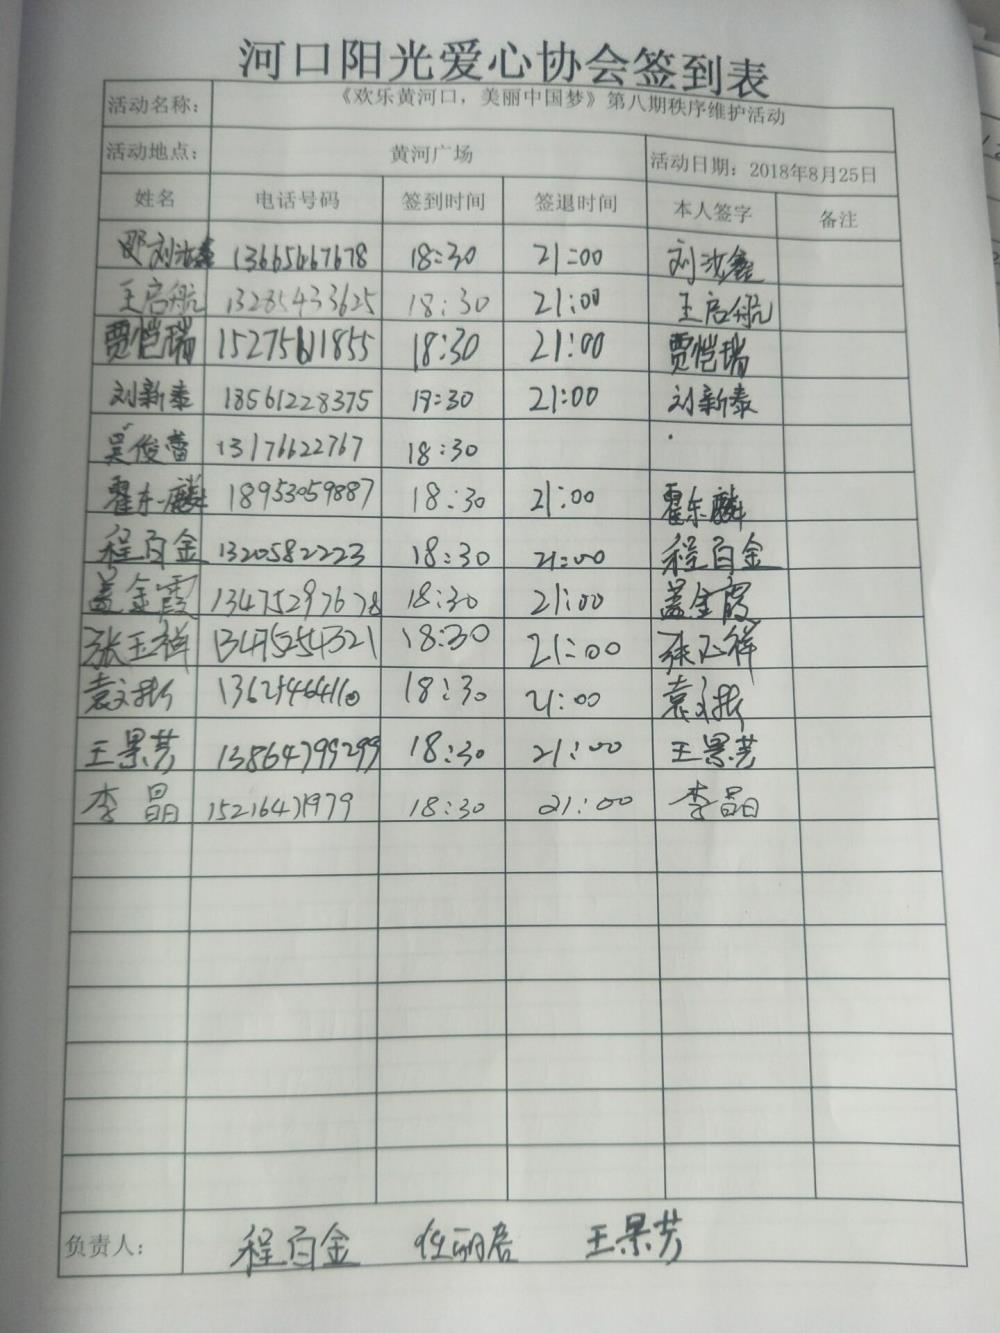 河口阳光爱心协会签到表
活动名称: 《欢乐黄河口，美丽中国梦》第八期秩序维护活动
活动地点: 黄河广场 活动日期: 2018年8月25日
姓名 电话号码 签到时间 签退时间 本人签字 备注
刘汝鑫 13665467678 18:30 21:00 刘汝鑫
王启航 13285433625 18:30 21:00 王启航
贾恺瑞 15275611855 18:30 21:00 贾恺瑞
刘新泰 18561228375 18:30 21:00 刘新泰
吴俊蕾 13176622767 18:30
翟东麟 18953059887 18:30 21:00 翟东麟
程百金 1320582223 18:30 21:00 程百金
盖金霞 13475297678 18:30 21:00 盖金霞
张玉祥 13475254321 18:30 21:00 张玉祥
袁文彬 18:30 21:00 袁文彬
王景芳 13864799299 18:30 21:00 王景芳
李晶 15216471979 18:30 21:00 李晶
负责人: 程百金 任丽君 王景芳